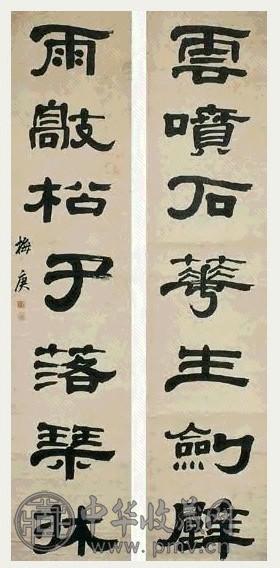 雲噴石華生劍壁
雨敲松子落琴牀
梅庚
中华收藏网
www.pmv.cn